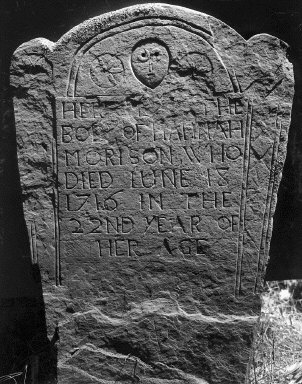 HER LYS THE
BODY OF HANNAH
MORISON WHO
DIED IUNE 18
1716 IN THE
22ND YEAR OF
HER AGE